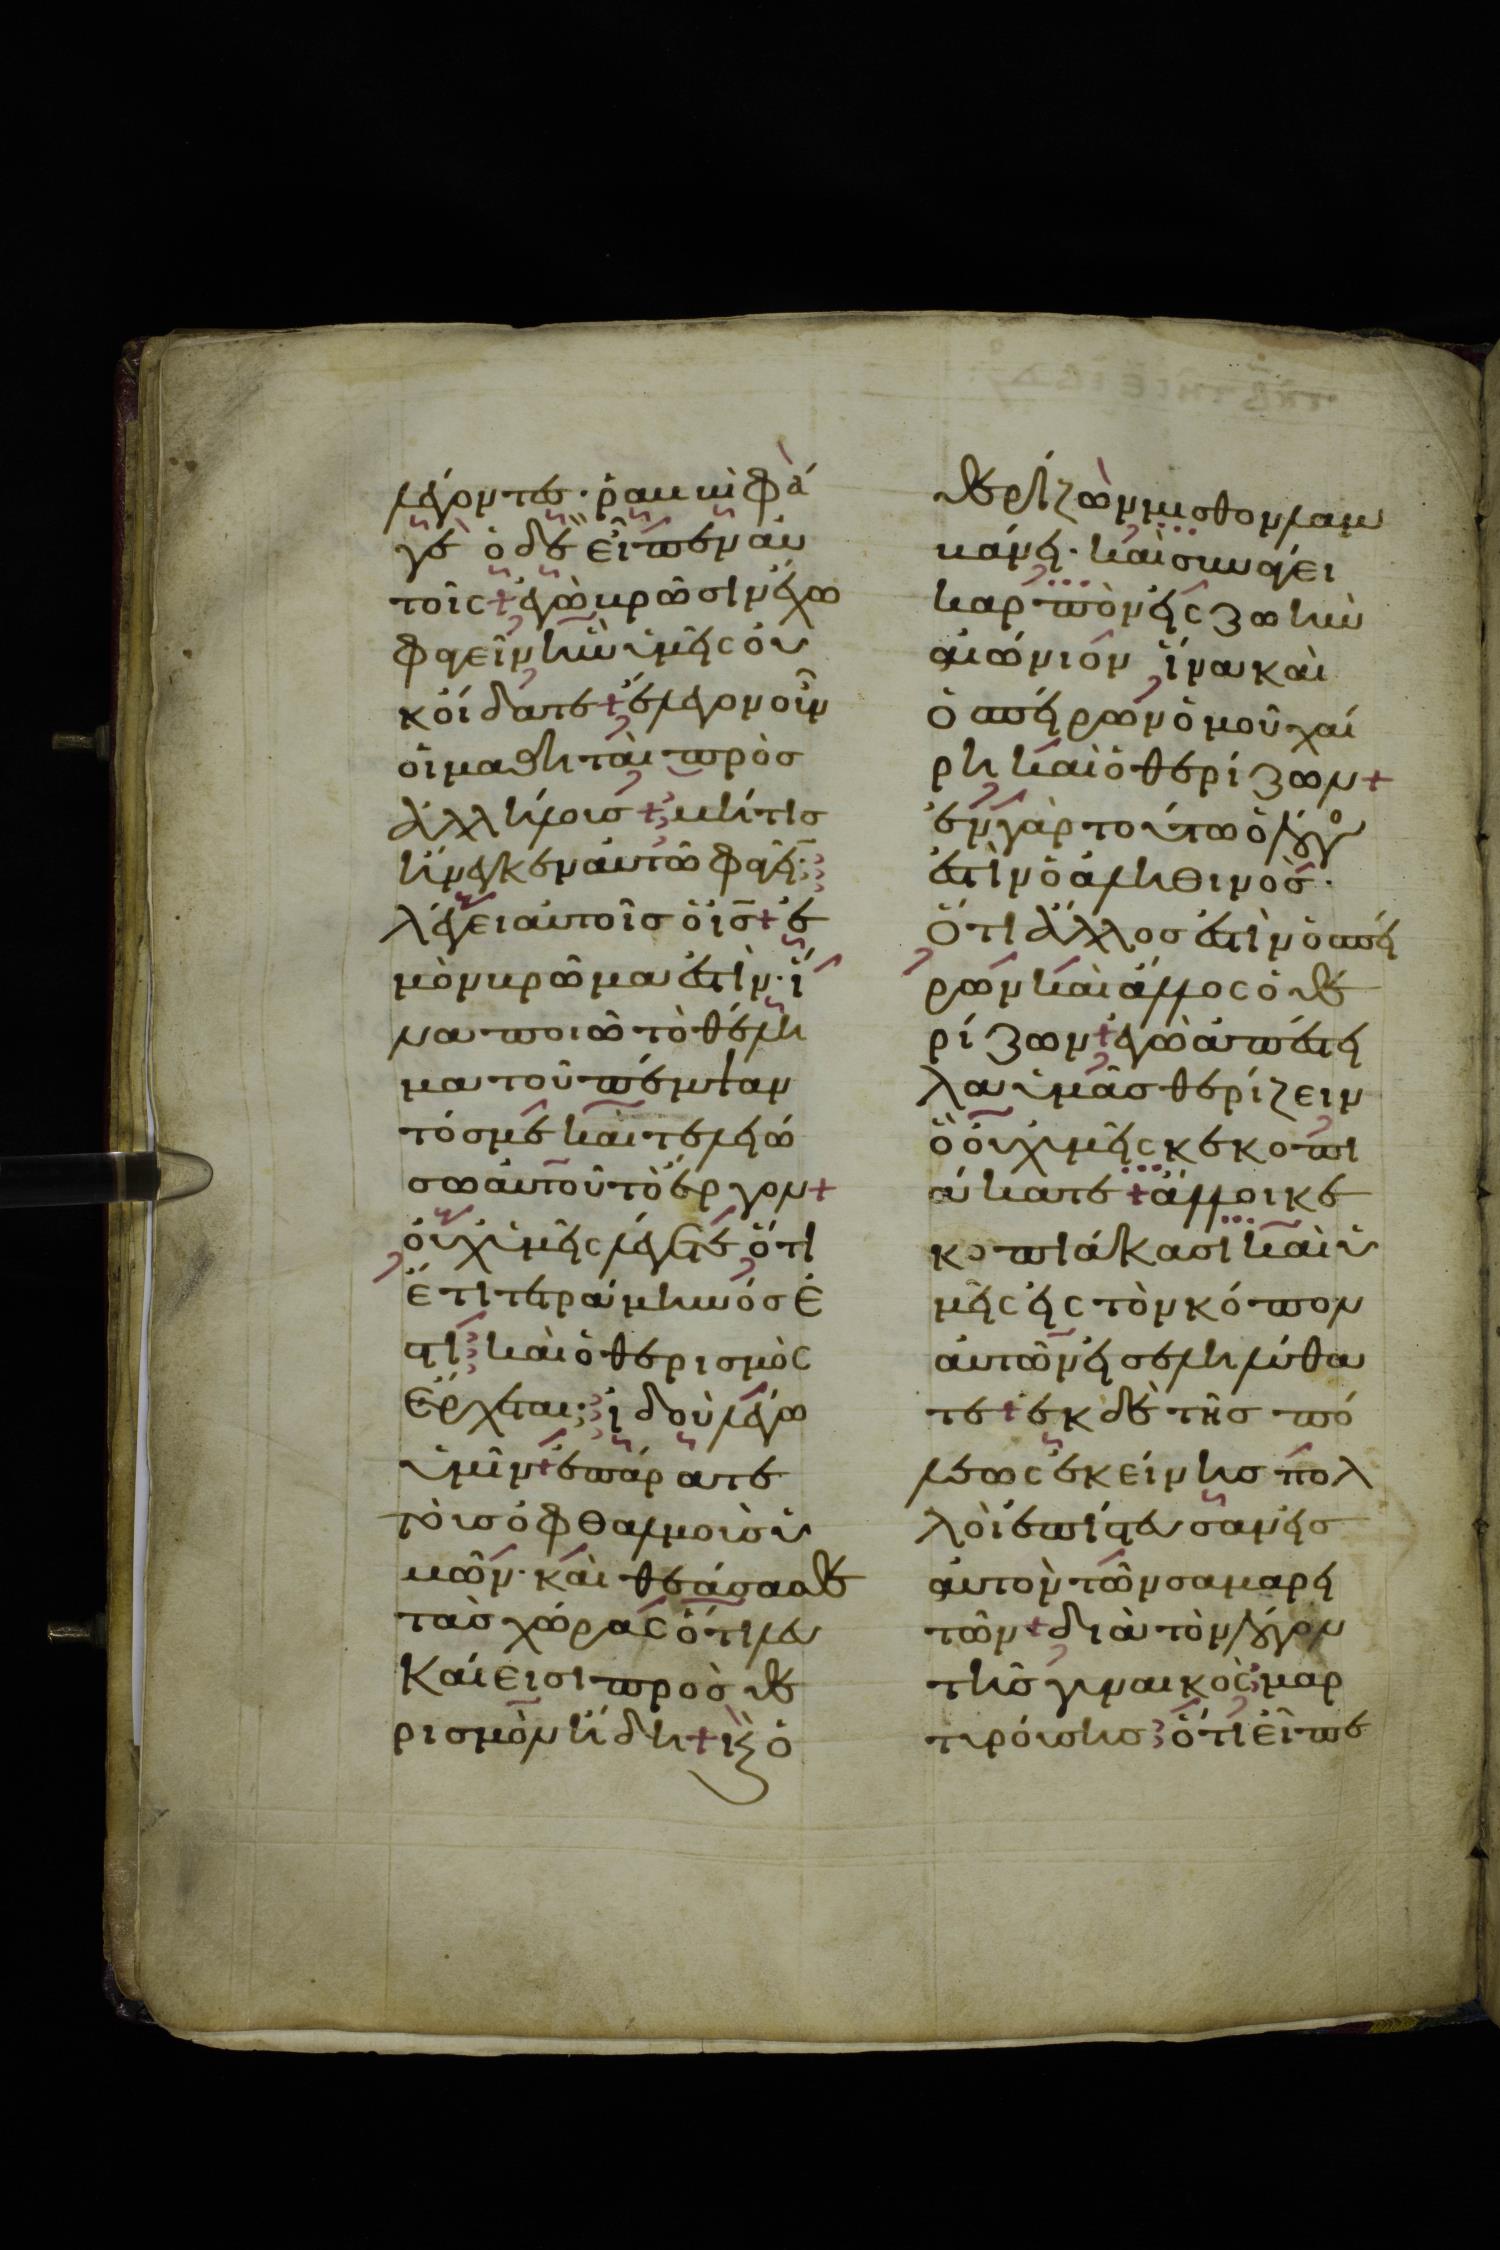 λέγοντες· ῥαββὶ φά
γε ὁ δὲ εἶπεν αὐ
τοῖς + ἐγὼ βρῶσιν ἔχω
φαγεῖν ἣν ὑμεῖς οὐ
κ οἴδατε + ἔλεγον οὖν
οἱ μαθηταὶ πρὸσ
ἀλλήλοισ + μήτισ
ἤνεγκεν αὐτῶ φαγεῖν
λέγει αὐτοῖσ ὁ ις + ἐ
μὸν βρῶμα ἐστὶν· ἵ
να ποιῶ τὸ θέλη
μα τοῦ πέμψαν
τόσ με καὶ τελειώ
σω αὐτοῦ τὸ ἔργον +
οὐχ ὑμεῖς λέγετε ὅτι
ἔτι τετράμηνόσ ἐ
στι καὶ ὁ θερισμὸς
ἔρχεται; ἰδοὺ λέγω
ὑμῖν + ἐπάρατε
τοὺσ ὀφθαλμοὺσ ὑ
μῶν· καὶ θεάσασθε
τὰσ χώρας ὅτι λευ
καί εἰσι πρὸσ θε
ρισμὸν ἤδη + καὶ ὁ
θερίζων μισθὸν λαμ
βάνει· καὶ συνάγει
καρπὸν εἰς ζωὴν
αἰώνιον ἵνα καὶ
ὁ σπείρων ὁμοῦ χαί
ρη καὶ ὁ θερίζων +
ἐν γὰρ τούτω ὁ λόγος
ἐστὶν ὁ ἀληθινὸσ·
ὅτι ἄλλοσ ἐστὶν ὁ σπεί
ρων καὶ ἄλλος ὁ θε
ρίζων + ἐγὼ ἀπέστει
λα ὑμᾶσ θερίζειν
ὃ οὐχ ὑμεῖς κεκοπι
άκατε + ἄλλοι κε
κοπιάκασι καὶ ὑ
μεῖς εἰς τὸν κόπον
αὐτῶν εἰσεληλύθα
τε + ἐκ δὲ τῆσ πό
λεως ἐκείνησ πολ
λοὶ ἐπίστευσαν εἰσ
αὐτὸν τῶν σαμαρει
τῶν + διὰ τὸν λόγον
τῆσ γυναικὸς μαρ
τυρούσησ ὅτι εἶπε